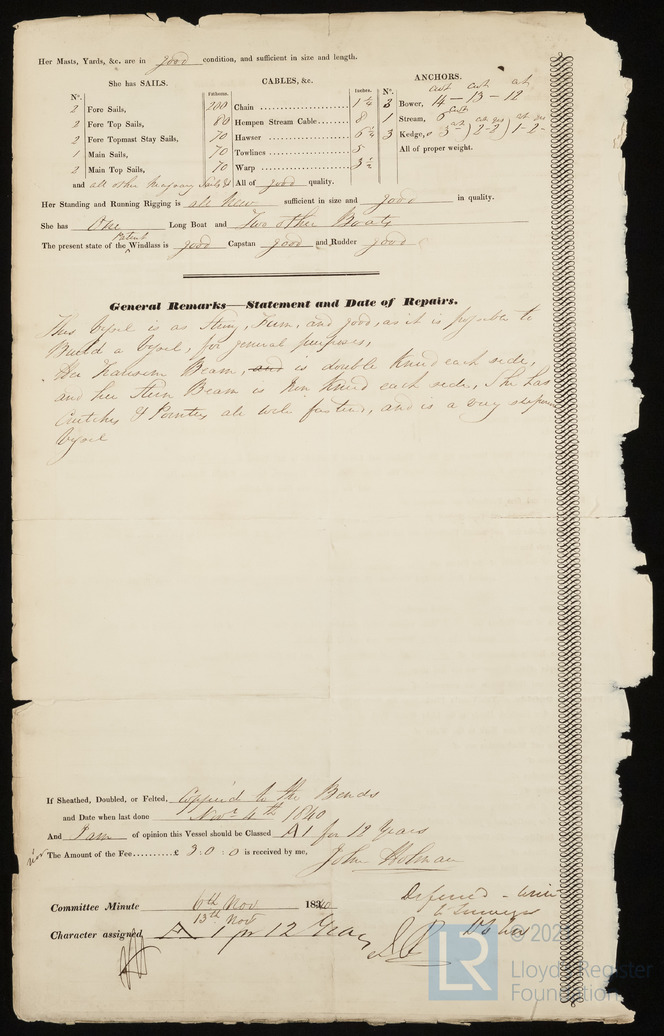 Her Masts, Yards, &c. are in good condition, and sufficient in size and length.
She has SAILS.
CABLES, &c.
ANCHORS.
Nº.
Fathoms.
Inches.
Nº.
cwt cwt
2 Fore Sails,
200 Chain 1 ¼
3 Bower, 14 – 13 – 12
2 Fore Top Sails,
80 Hempen Stream Cable 8
1 Stream, 6
2 Fore Topmast Stay Sails,
70 Hawser 6 ½
3 Kedge,
1 Main Sails,
70 Towlines 5
All of proper weight.
2 Main Top Sails,
70 Warp 3 ½
and all other necessary Sails &c
All of good quality.
Her Standing and Running Rigging is all New sufficient in size and good in quality.
She has One Long Boat and Two other Boats
The present state of the Patent Windlass is good Capstan good and Rudder good
General Remarks—Statement and Date of Repairs.
This Vessel is as Strong, Firm, and good, as it is possible to
Build a Vessel, for general purposes,
Her Transom Beam, and is double Kneed each side,
and her Stern Beam is Iron Kneed each side, She has
Crutches & Pointers all well fastened, and is a very superior
Vessel
If Sheathed, Doubled, or Felted, Copper'd to the Bends
and Date when last done Novr 4th 1840
And I am of opinion this Vessel should be Classed A 1 for 12 Years
The Amount of the Fee £ 3 : 0 : 0 is received by me,
John Holman
Committee Minute 6th Nov 1840
13th Nov
Deferred – write
to Surveyor
Character assigned A 1 for 12 Years
LR
© 202
Lloyd's Register
Foundation